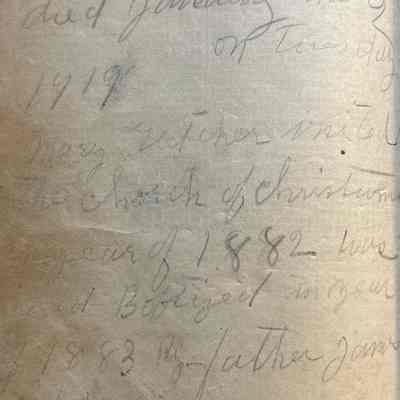 died January
on Tuesday
1919
Mary united
the Church of Christ
year of 1882 was
Babtized in year
1883 By father James